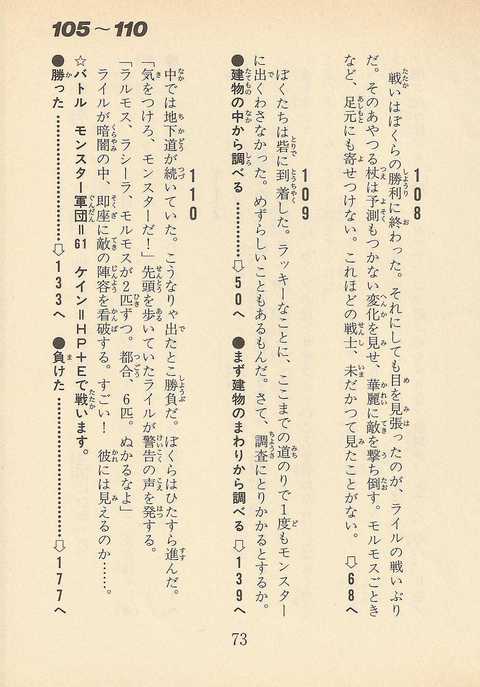 105～110
108
戦いはぼくらの勝利に終わった。それにしても目を見張ったのが、ライルの戦いぶり
だ。そのあやつる杖は予測もつかない変化を見せ、華麗に敵を撃ち倒す。モルモスごとき
など、足元にも寄せつけない。これほどの戦士、未だかつて見たことがない。 ⇨68へ
109
ぼくたちは砦に到着した。ラッキーなことに、ここまでの道のりで1度もモンスター
に出くわさなかった。めずらしいこともあるもんだ。さて、調査にとりかかるとするか。
●建物の中から調べる ………………⇨50へ ●まず建物のまわりから調べる ⇨139へ
110
中では地下道が続いていた。こうなりゃ出たとこ勝負だ。ぼくらはひたすら進んだ。
「気をつけろ、モンスターだ！」先頭を歩いていたライルが警告の声を発する。
「ラルモス、ラシーラ、モルモスが2匹ずつ。都合、6匹。ぬかるなよ」
ライルが暗闇の中、即座に敵の陣容を看破する。すごい！ 彼には見えるのか……。
☆バトル モンスター軍団＝61 ケイン＝HP＋Eで戦います。
●勝った ………………………⇨133へ ●負けた ………………………⇨177へ
73